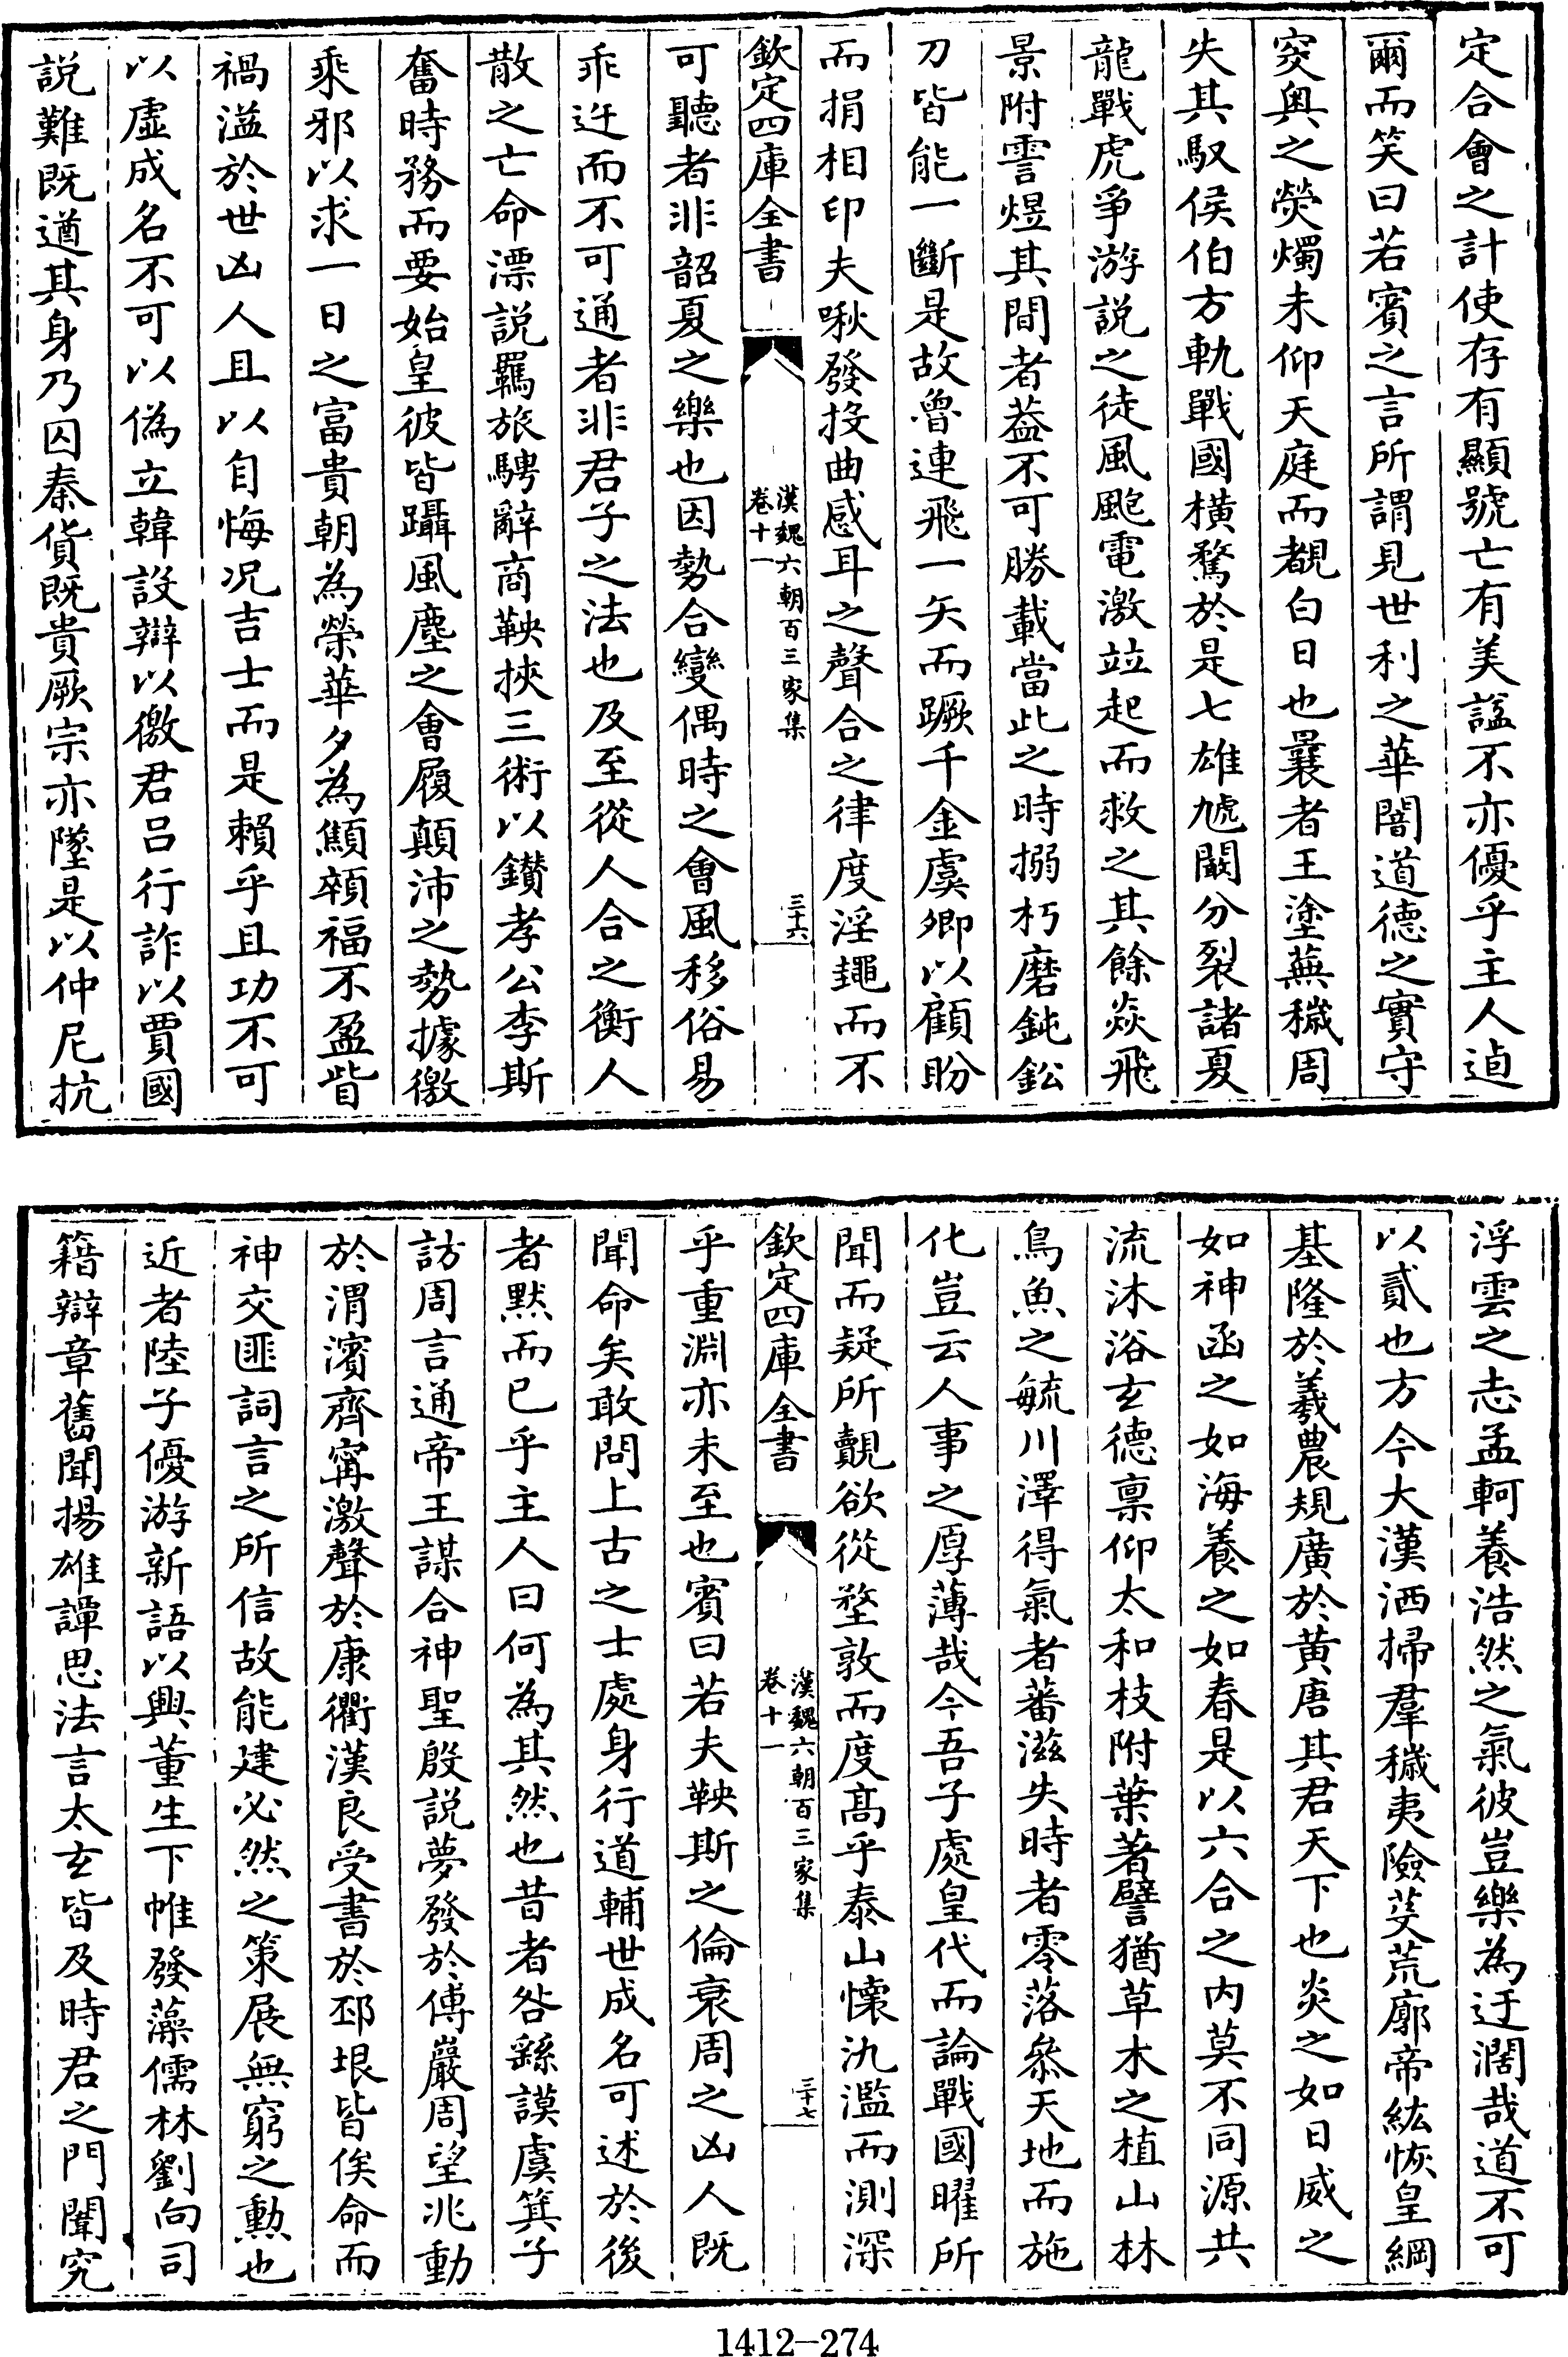 定合會之計使存有顯號亡有美諡不亦優乎主人逌
爾而笑曰若賓之言所謂見世利之華闇道德之實守
窔奥之熒燭未仰天庭而覩白日也曩者王塗蕪穢周
失其馭侯伯方軌戰國横騖於是七雄虓闞分裂諸夏
龍戰虎爭游説之徒風颮電激竝起而救之其餘焱飛
景附霅煜其間者葢不可勝載當此之時搦朽磨鈍鈆
刀皆能一斷是故魯連飛一矢而蹶千金虞卿以顧盼
而捐相印夫啾發投曲感耳之聲合之律度淫䵷而不
欽定四庫全書
漢魏六朝百三家集
卷十一
三十六
可聽者非韶夏之樂也因勢合變偶時之會風移俗易
乖迕而不可通者非君子之法也及至從人合之衡人
散之亡命漂説羈旅騁辭商鞅挾三術以鑚孝公李斯
奮時務而要始皇彼皆躡風塵之會履顛沛之勢據徼
乘邪以求一日之富貴朝為榮華夕為顦顇福不盈眥
禍溢於世凶人且以自悔况吉士而是賴乎且功不可
以虛成名不可以偽立韓設辯以徼君吕行詐以賈國
説難既遒其身乃囚秦貨既貴厥宗亦墜是以仲尼抗
浮雲之志孟軻養浩然之氣彼豈樂為迂濶哉道不可
以貳也方今大漢洒掃羣穢夷險芟荒廓帝紘恢皇綱
基隆於羲農規廣於黄唐其君天下也炎之如日威之
如神函之如海養之如春是以六合之内莫不同源共
流沐浴玄德禀仰太和枝附葉著譬猶草木之植山林
鳥魚之毓川澤得氣者蕃滋失時者零落叅天地而施
化豈云人事之厚薄哉今吾子處皇代而論戰國曜所
聞而疑所覿欲從堥敦而度高乎泰山懷氿濫而測深
欽定四庫全書
漢魏六朝百三家集
卷十一
三十七
乎重淵亦未至也賓曰若夫鞅斯之倫衰周之凶人既
聞命矣敢問上古之士處身行道輔世成名可述於後
者默而已乎主人曰何為其然也昔者咎繇謨虞箕子
訪周言通帝王謀合神聖殷説夢發於傅巖周望兆動
於渭濱齊甯激聲於康衢漢良受書於邳垠皆俟命而
神交匪詞言之所信故能建必然之策展無窮之勲也
近者陸子優游新語以興董生下帷發藻儒林劉向司
籍辯章舊聞揚雄譚思法言太玄皆及時君之門闈究
1412-274